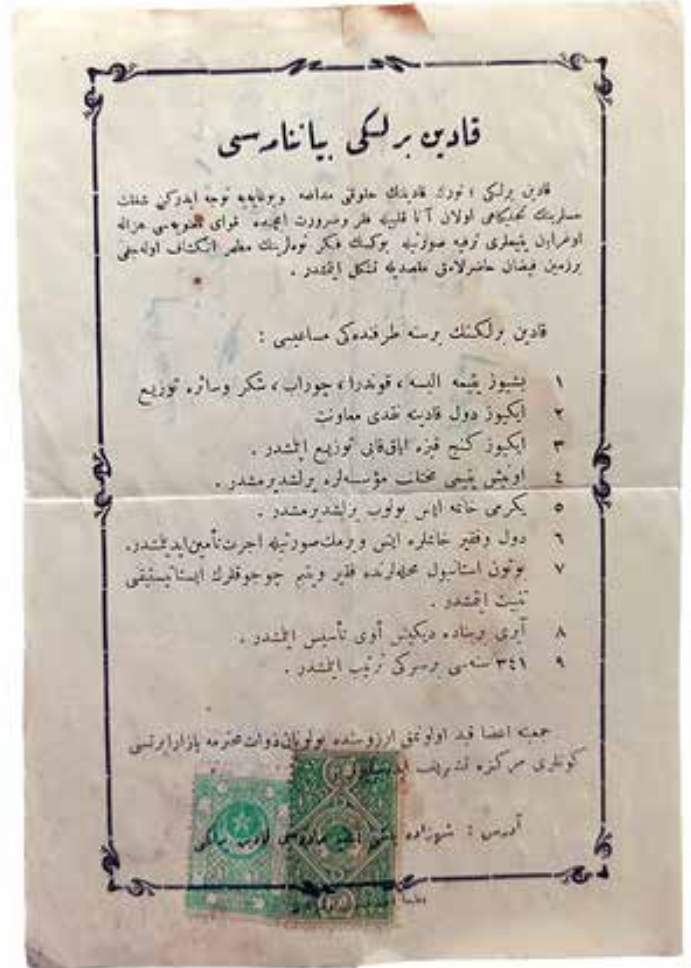 قادين برلكى بياننامه‌سى
قادين برلكى ؛ تورك قادينك حقوقنى مدافعه و بوغايه‌يه توجه ايدركن شفقت
حسلرينك تجليكاهى اولان آنا قلبيله فقر و ضرورت ايچنده قواى هزاله
اوغرايان يتيملرى ترفيه صورتيله يوكسك فكر انكشاف اوله‌جغى
بر زمين فيضان حاضرلامق مقصديله تشكل ايتمشدر .
قادين برلكنك بر سنه ظرفنده‌كى مساعيسى :
١ بشيوز يتيمه البسه ، قوندرا ، چوراب ، شكر وسائره توزيع
٢ ايكيوز دول قادينه نقدى معاونت
٣ ايكيوز كنج قيزه اياق‌قابى توزيع ايتمشدر .
٤ اون‌بش يتيمى مختلف مؤسسه‌لره يرلشديرمشدر .
٥ يكرمى خانمه ايش بولوب يرلشديرمشدر .
٦ دول و فقير خانملره ايش ويرمك صورتيله اجرت تأمين ايديلمشدر.
٧ بوتون استانبول محله‌لرنده فقير و يتيم چوجوقلرك ايستاتيستيقنى
تثبيت ايتمشدر .
٨ آيرى بر بناده ديكيش أوى تأسيس ايتمشدر .
٩ ٣٤١ سنه‌سى بر سركى ترتيب ايتمشدر .
جمعيته اعضا قيد اولونمق آرزوسنده بولونان ذوات محترمه بازارايرتسى
كونلرى مركزه تشريف
آدرس : شهزاده باشى قادين برلكى